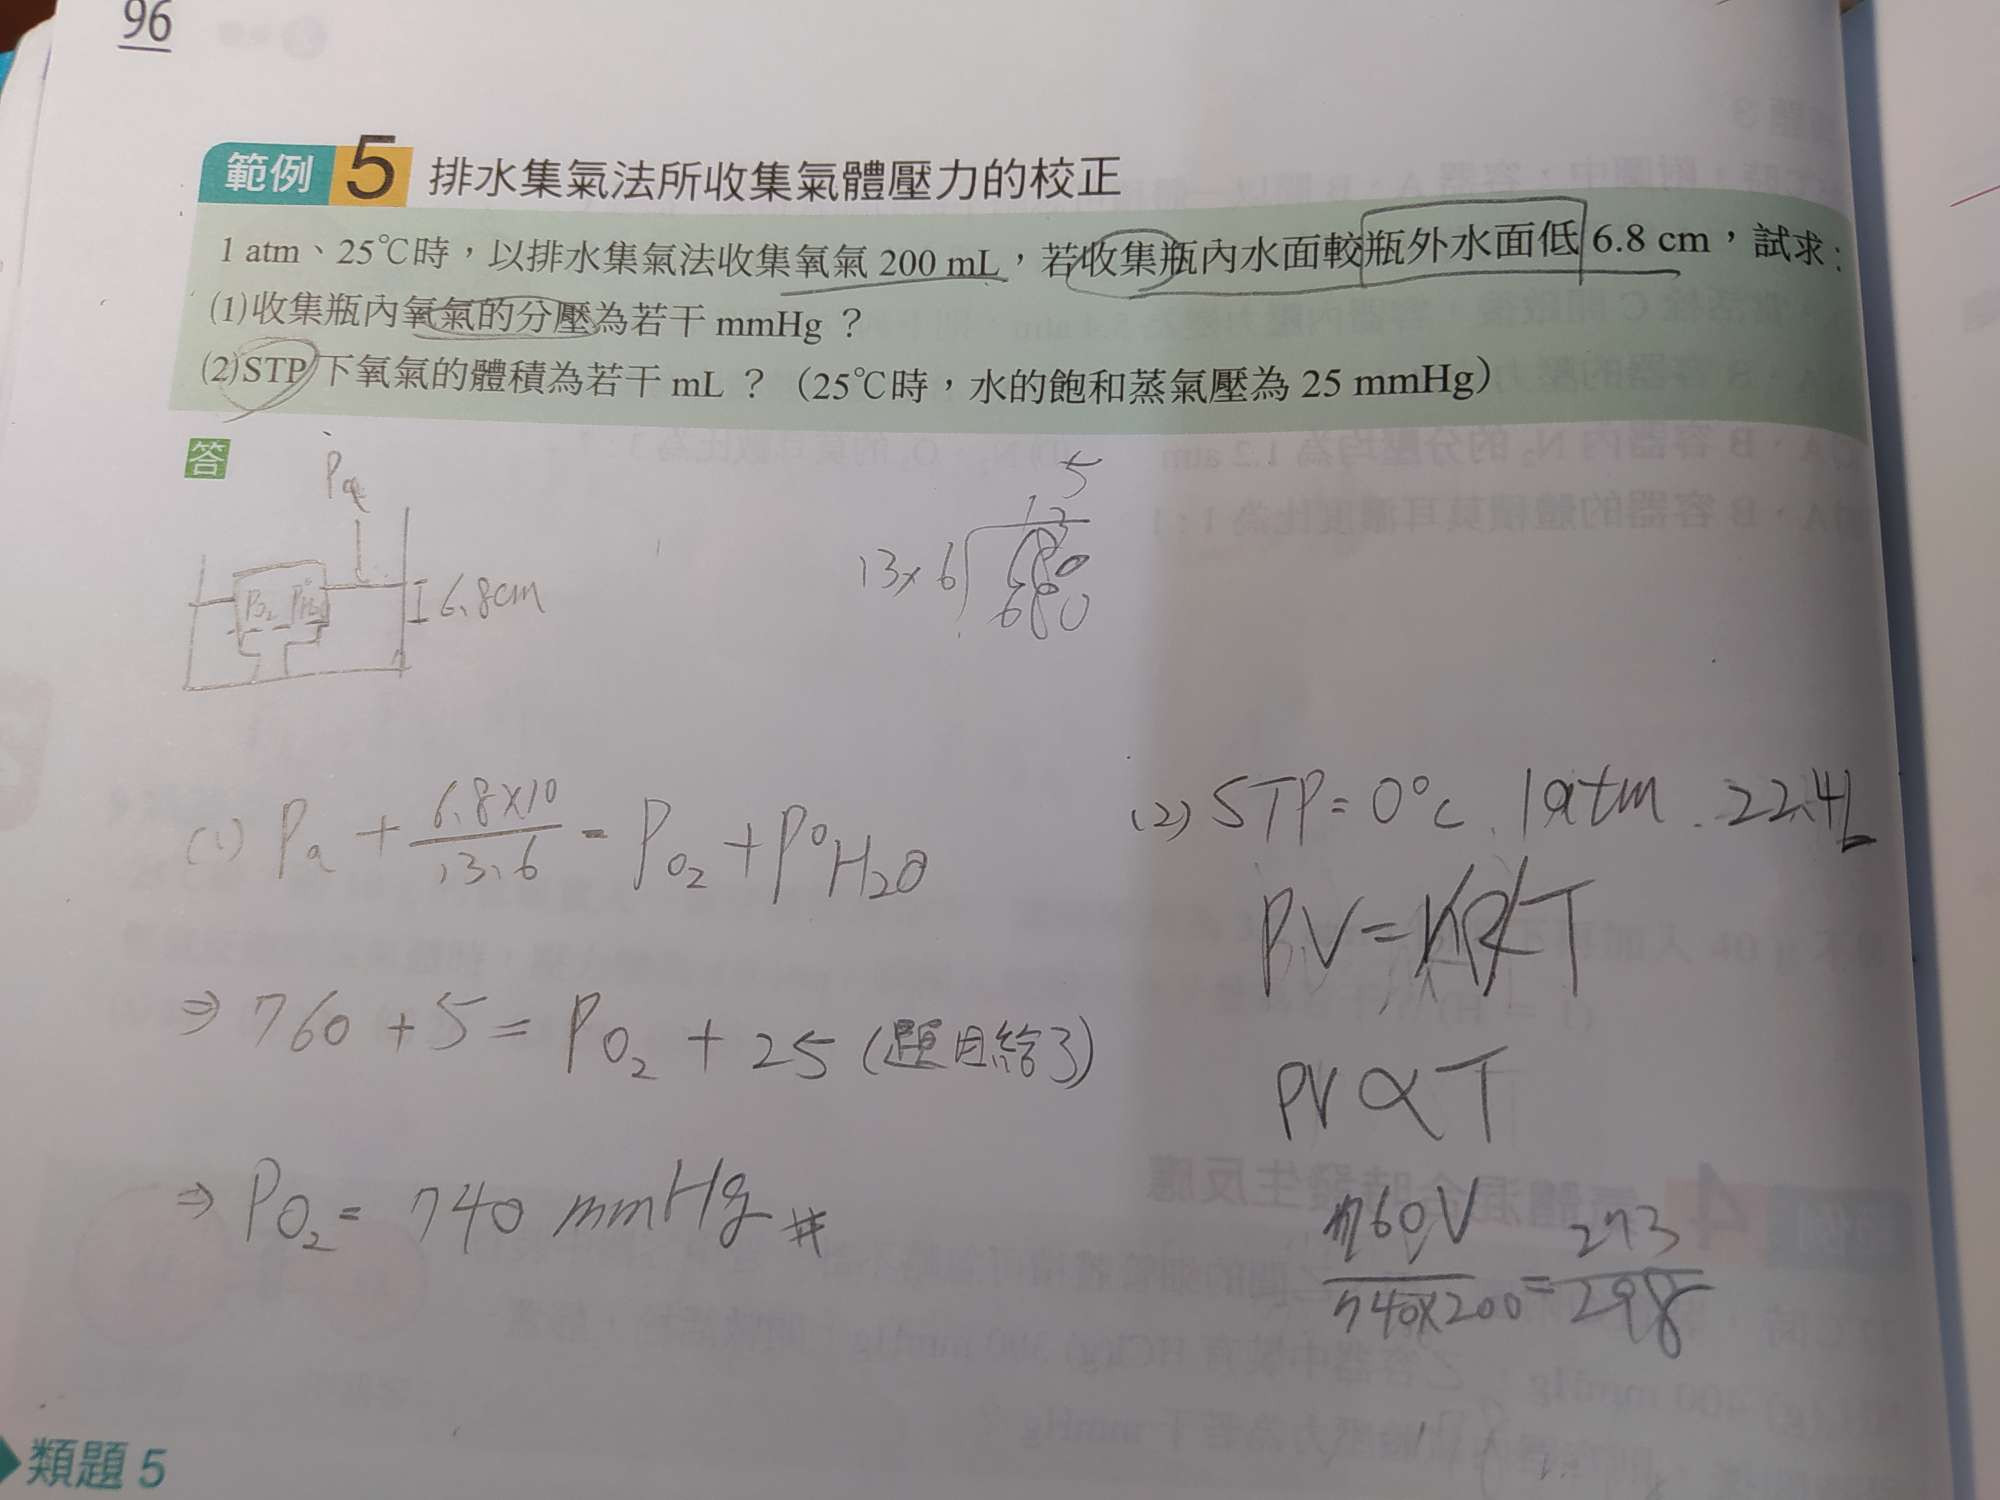 96
範例 5 排水集氣法所收集氣體壓力的校正
1 atm、25℃時，以排水集氣法收集氧氣 200 mL，若收集瓶內水面較瓶外水面低 6.8 cm，試求：
(1)收集瓶內氧氣的分壓為若干 mmHg？
(2)STP 下氧氣的體積為若干 mL？（25℃時，水的飽和蒸氣壓為 25 mmHg）
答
Pa
PO2 P°H2O
I 6.8cm
5
13×6
680
680
(1) Pa + 6.8×10/13.6 = PO2 + P°H2O
⇒ 760 + 5 = PO2 + 25 (題目給了)
⇒ PO2 = 740 mmHg #
(2) STP = 0°C . 1atm . 22.4L
PV = nRT
PV ∝ T
760V/740×200 = 273/298
類題 5